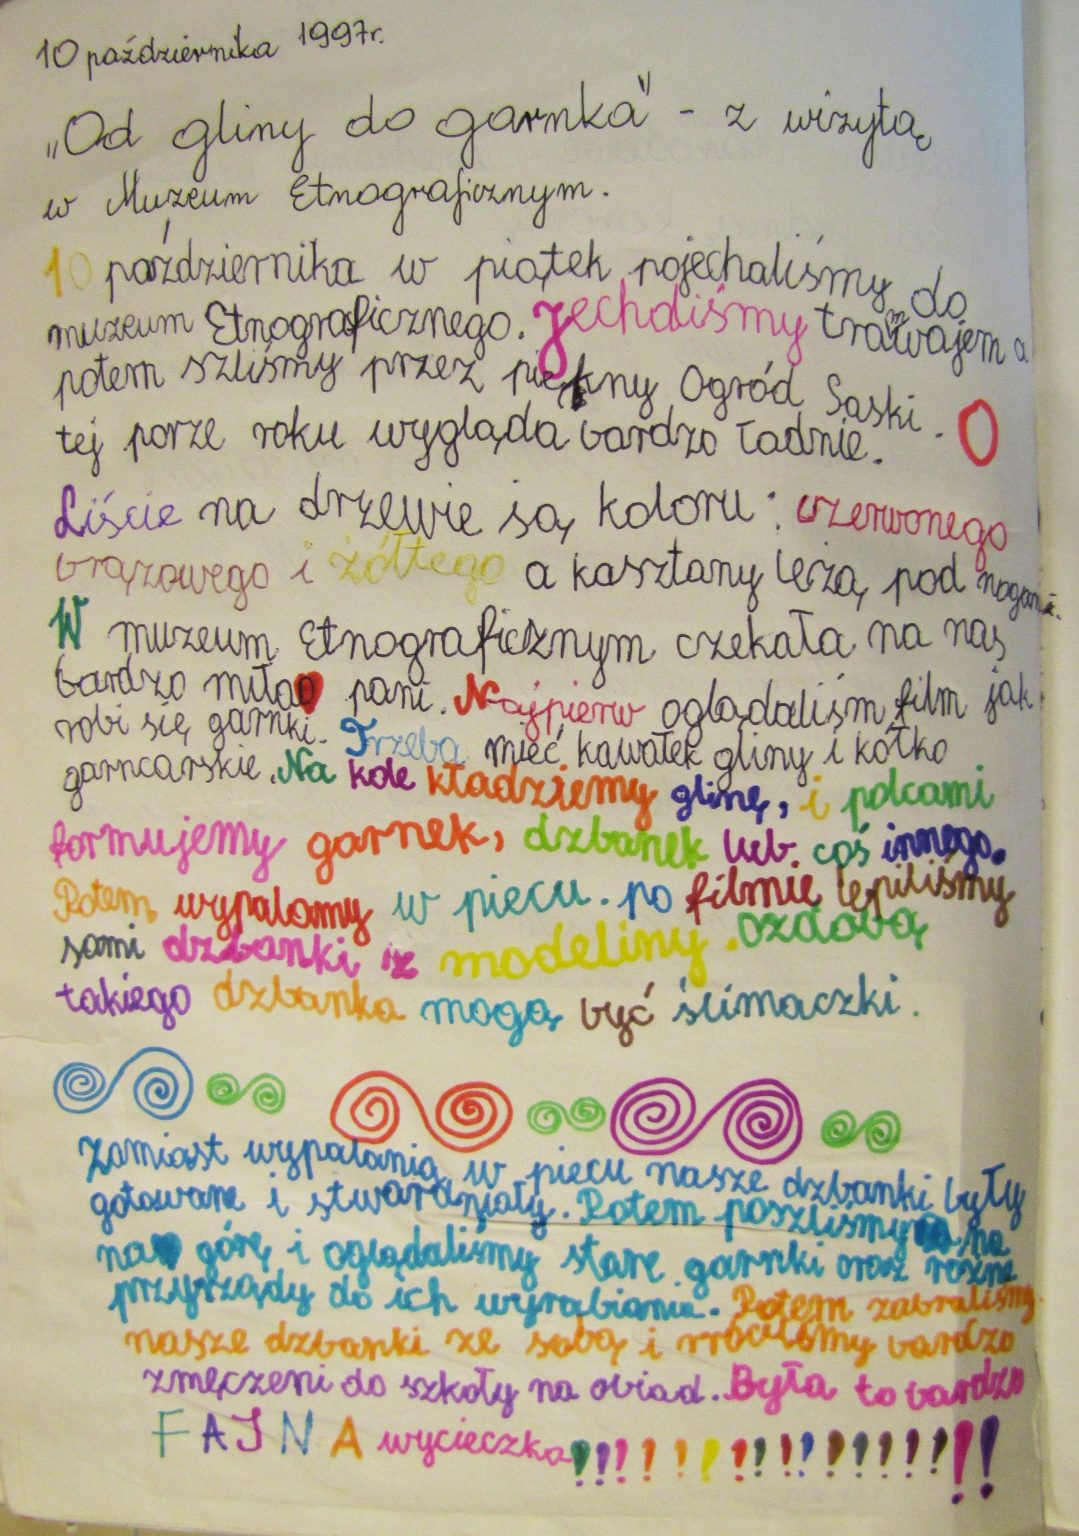 10 października 1997r.
„Od gliny do garnka" - z wizytą
w Muzeum Etnograficznym.
10 października w piątek pojechaliśmy do
muzeum Etnograficznego. Jechaliśmy tramwajem a
potem szliśmy przez piękny Ogród Saski. O
tej porze roku wygląda bardzo ładnie.
Liście na drzewie są koloru: czerwonego
brązowego i żółtego a kasztany leżą pod nogami.
W muzeum Etnograficznym czekała na nas
bardzo miła pani. Najpierw oglądaliśm film jak
robi się garnki. Trzeba mieć kawałek gliny i kółko
garncarskie. Na kole kładziemy glinę, i palcami
formujemy garnek, dzbanek lub coś innego.
Potem wypalamy w piecu. po filmie lepiliśmy
sami dzbanki z modeliny. ozdobą
takiego dzbanka mogą być ślimaczki.
Zamiast wypalania w piecu nasze dzbanki były
gotowane i stwardniały. Potem poszliśmy na
na górę i oglądaliśmy stare garnki oraz różne
przyrządy do ich wyrabiania. Potem zabraliśmy
nasze dzbanki ze sobą i wróciliśmy bardzo
zmęczeni do szkoły na obiad. Była to bardzo
FAJNA wycieczka!!!!!!!!!!!!!!!!!